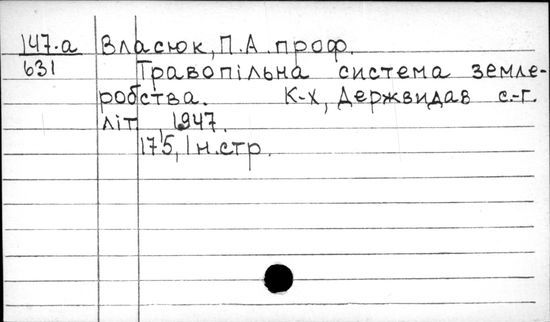 147.а Власюк, П.А. проф.
631
Травопільна система земле-
робства. К-Х, Держвидав с.-г.
літ, 1947.
175, 1 н.стр.